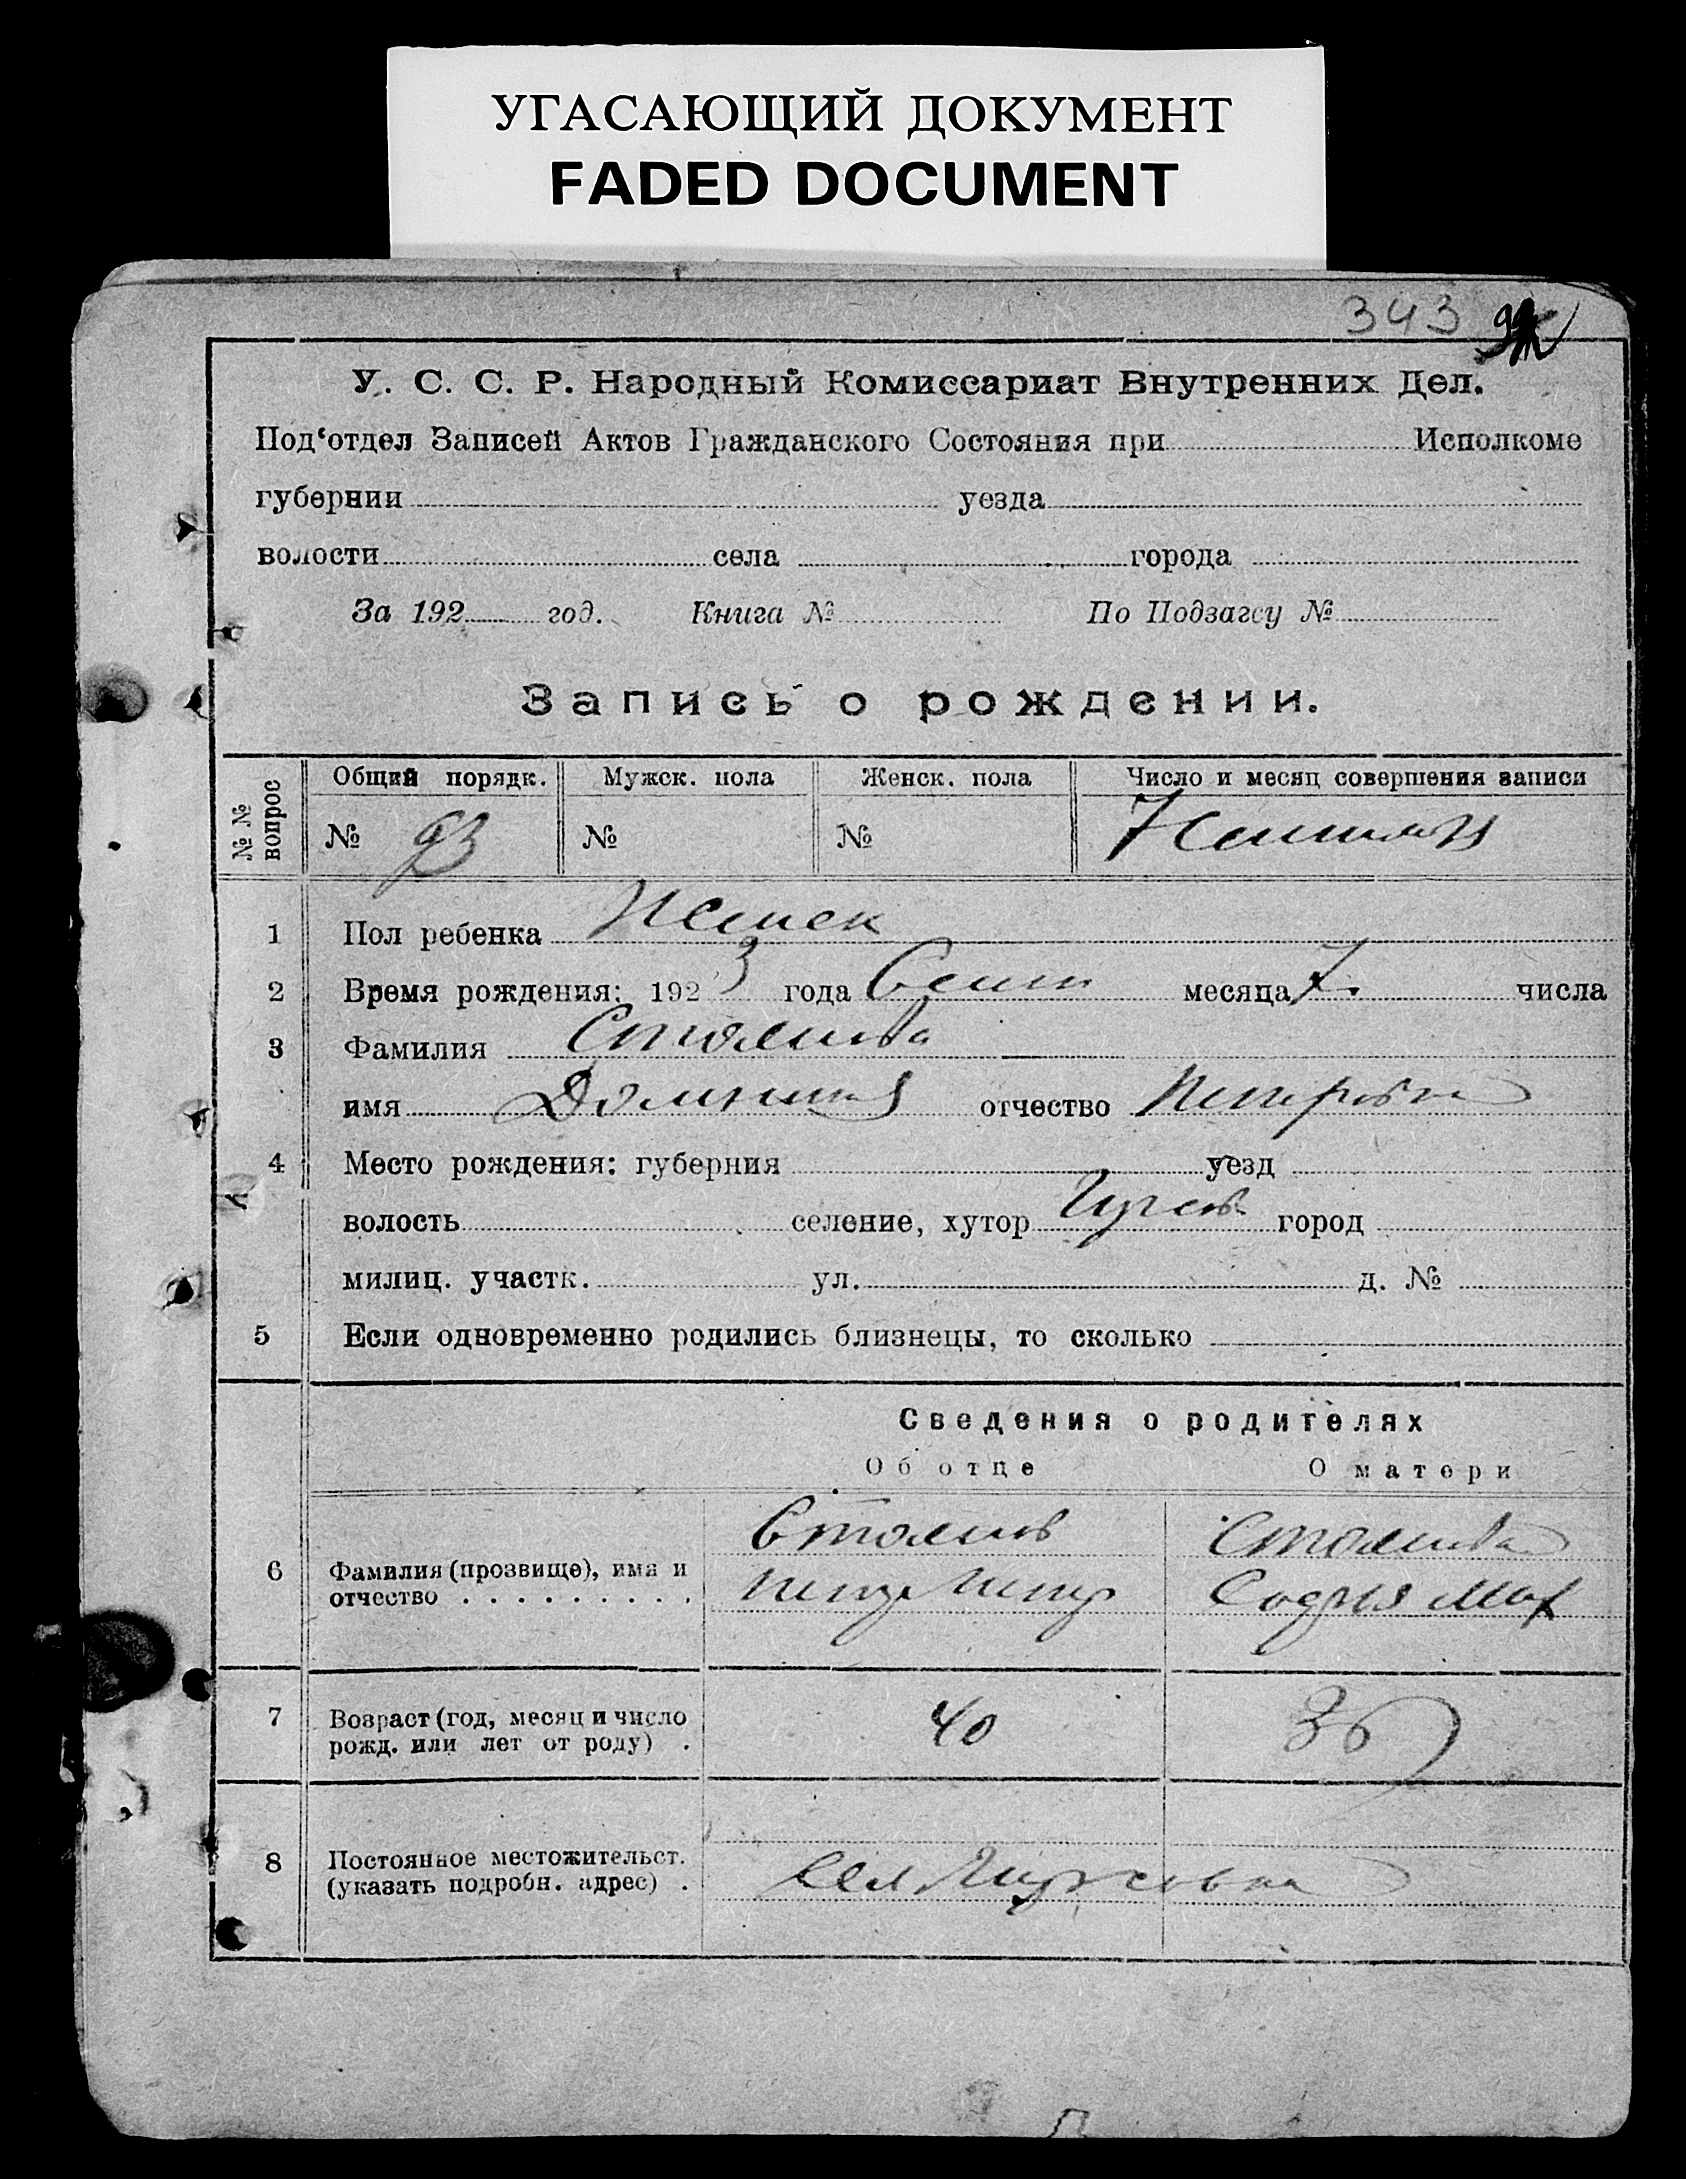 УГАСАЮЩИЙ ДОКУМЕНТ
FADED DOCUMENT
343
У. С. С. Р. Народный Комиссариат Внутренних Дел.
Под‘отдел Записей Актов Гражданского Состояния при Исполкоме
губернии уезда
волости села города
За 192 год. Книга № По Подзагсу №
Запись о рождении.
№ № вопрос Общий порядк. Мужск. пола Женск. пола Число и месяц совершения записи
№ 93 № № 7
1 Пол ребенка Женск
2 Время рождения: 192 3 года Сент месяца 7 числа
3 Фамилия
имя Домникия отчество Петровна
4 Место рождения: губерния уезд
волость селение, хутор город
милиц. участк. ул. д. №
5 Если одновременно родились близнецы, то сколько
Сведения о родителях
Об отце О матери
6 Фамилия (прозвище), имя и
отчество Петр Петр София
7 Возраст (год, месяц и число
рожд. или лет от роду) . 40 36
8 Постоянное местожительст.
(указать подробн. адрес) .